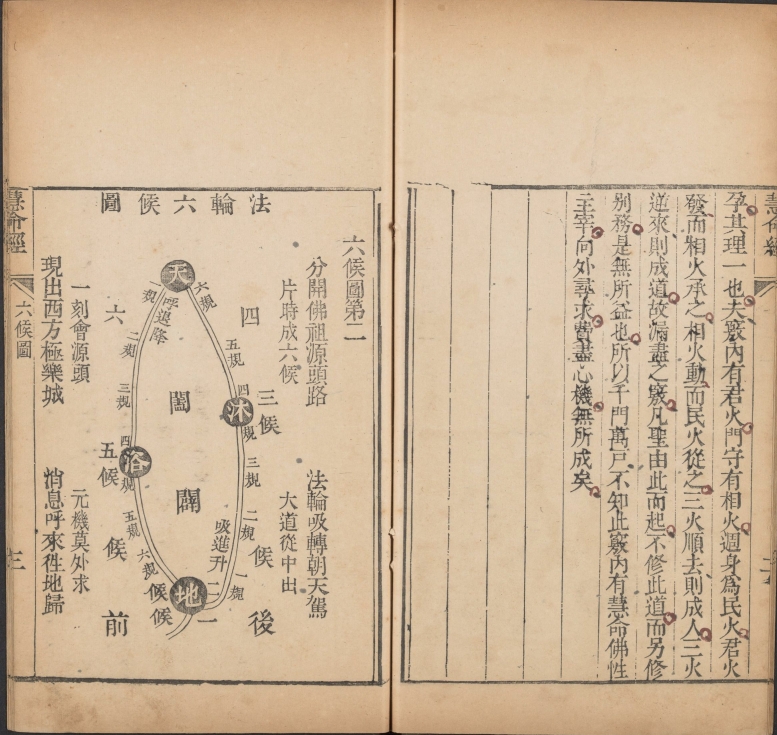 慧命經
孕其理一也夫竅內有君火門守有相火週身爲民火君火
發而相火承之相火動而民火從之三火順去則成人三火
逆來則成道故漏盡之竅凡聖由此而起不修此道而另修
別務是無所益也所以千門萬戶不知此竅內有慧命佛性
主宰向外尋求費盡心機無所成矣
六候圖第二
分開佛祖源頭路
法輪吸轉朝天駕
片時成六候
大道從中出
法輪六候圖
天
六規
五規
四
沐
規
三規
二規
一規
吸進升
呼退降
規
二規
三規
四
浴
規
五規
六規
地
闔
闢
四
三候
候
後
一
二
候
候
六
五候
候
前
一刻會源頭
元機莫外求
現出西方極樂城
消息呼來往地歸
慧命經
六候圖
三